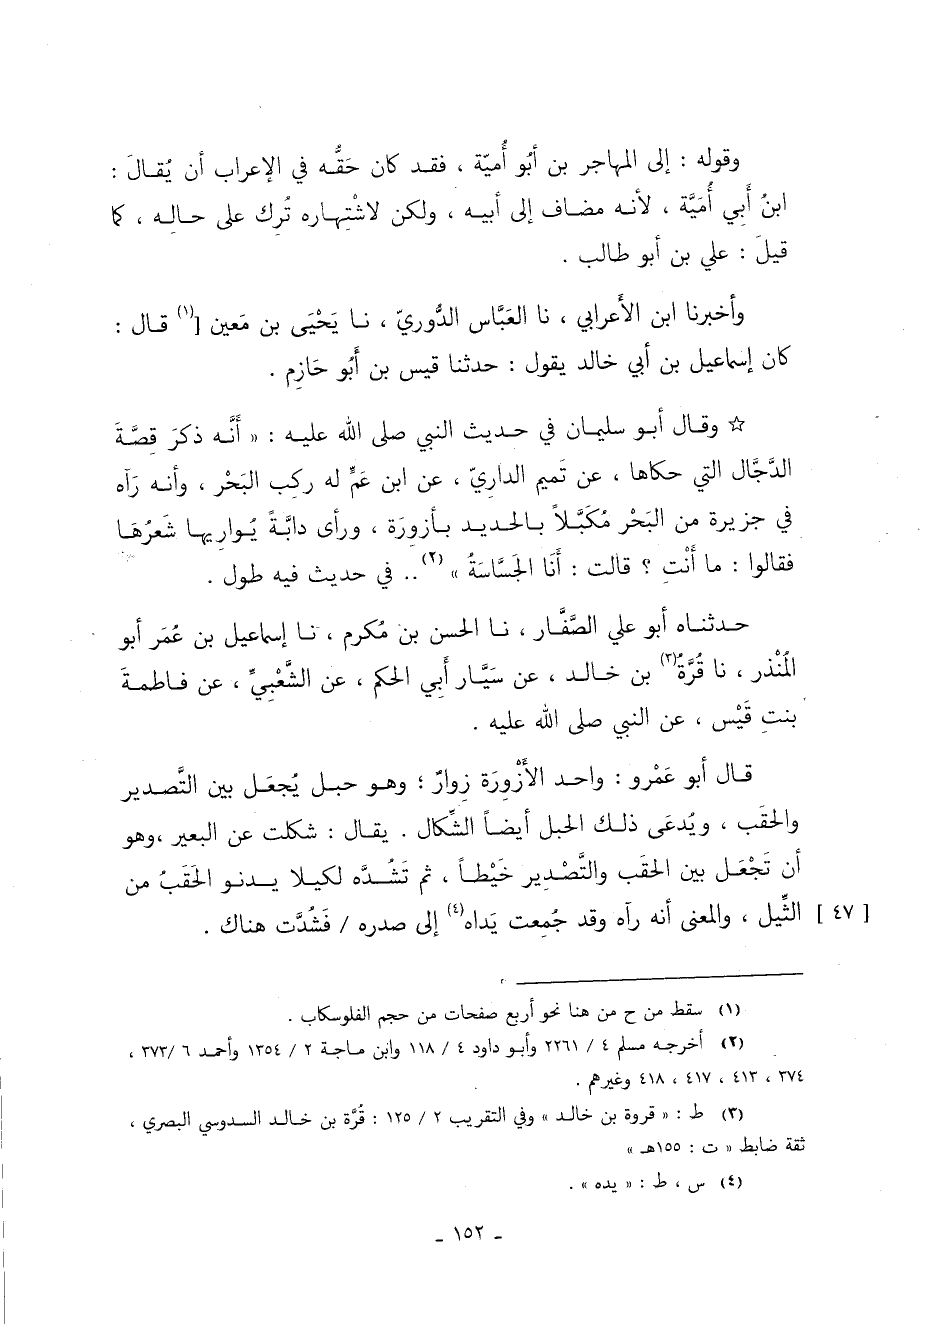 وقوله : إلى المهاجر بن أبو أُميّة ، فقـد كان حَقُّـه في الإعراب أن يُقـالَ :
ابنُ أَبي أُمَيَّة ، لأنـه مضـاف إلى أبيـه ، ولكن لاشْتِهاره تُرك على حـالـه ، كا
قيلَ : علي بن أبو طالب .
وأخبرنا ابن الأَعرابي ، نا العَبَّاس الدُّوريّ ، نـا يَحْيَى بن مَعين [(١) قـال :
كان إسماعيل بن أبي خالد يقول : حدثنا قيس بن أَبُو حَازِم .
☆ وقـال أبـو سليمان في حـديث النبي صلى الله عليـه : « أَنَّـه ذكَرَ قِصَّـةَ
الدَّجَّال التي حكاها ، عن تَميم الداريّ ، عن ابن عَمٍّ له ركب البَحْر ، وأنـه رَآه
في جزيرة من البَحْر مُكَبَّـلاً بـالحـديـد بـأزورَة ، ورأى دابَّـةً يُـواريهـا شَعرُهَـا
فقالوا : ما أَنْتِ ؟ قالت : أَنَا الجَسَّاسَةُ » (٢).. في حديث فيه طول .
حـدثنـاه أبو علي الصَّفَّـار ، نـا الحسن بن مُكرم ، نـا إسماعيل بن عُمَر أبو
المُنْذر ، نا قُرَّةُ(٣) بن خالـد ، عن سَيَّار أَبي الحكم ، عن الشَّعْبيِّ ، عن فـاطمـةَ
بنتِ قَيْس ، عن النبي صلى الله عليه .
قـال أبو عَمْرو : واحـد الأَزْورَة زِوارٌ ؛ وهـو حبـل يُجعَـل بين التَّصـديـر
والحَقَب ، ويُدعَى ذلـك الحبل أيضاً الشِّكال . يقـال : شكلت عن البعير ،وهو
أن تَجْعَل بين الحقَب والتَّصْديـر خَيْطـاً ، ثم تَشُـدَّه لكيـلا يـدنـو الحَقَبُ من
[ ٤٧ ] الثِّيل ، والمعنى أنه رآه وقد جُمعت يَداه(٤) إلى صدره / فَشُدَّت هناك .
(١) سقط من ح من هنا نحو أربع صفحات من حجم الفلوسكاب .
(٢) أخرجه مسلم ٤ / ٢٢٦١ وأبو داود ٤ / ١١٨ وابن ماجة ٢ / ١٣٥٤ وأحمد ٦ /٣٧٣ ،
٣٧٤ ، ٤١٣ ، ٤١٧ ، ٤١٨ وغيرهم .
(٣) ط : « قروة بن خالد » وفي التقريب ٢ / ١٢٥ : قُرَّة بن خالد السدوسي البصري ،
ثقة ضابط « ت : ١٥٥هـ »
(٤) س ، ط : « يده » .
ـ ١٥٢ ـ